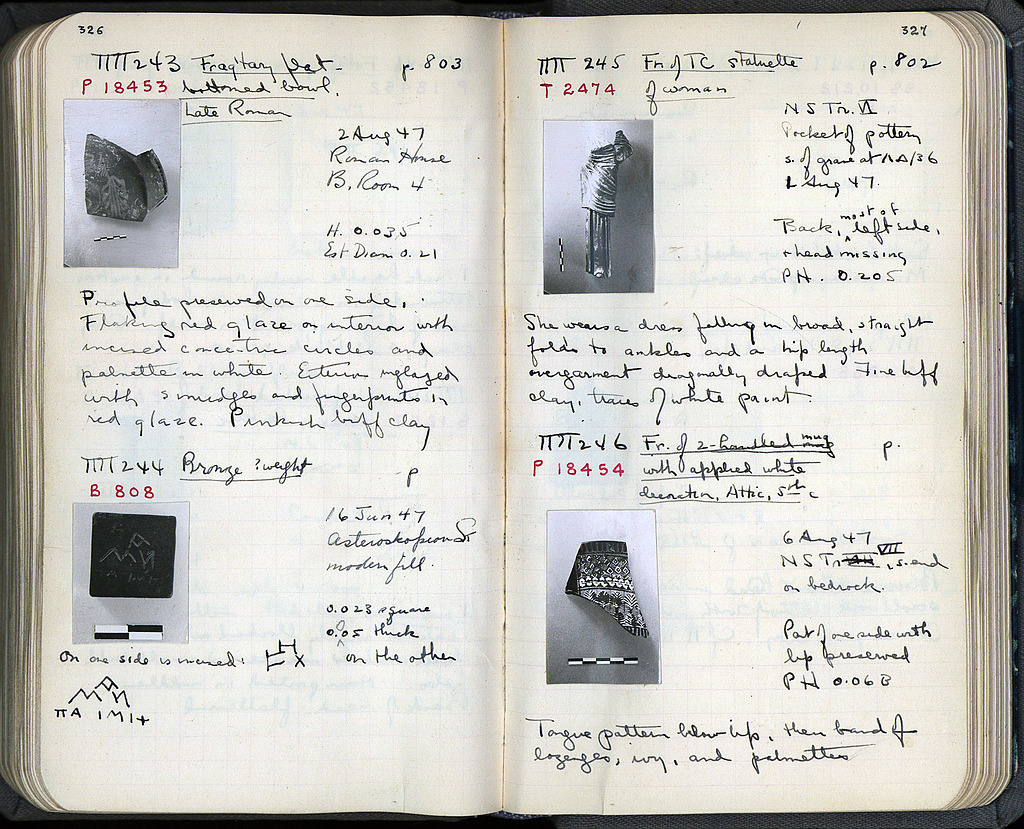 326
ΠΠ 243 Frag'tary flat- p. 803
P 18453 bottomed bowl,
Late Roman
2 Aug 47
Roman House
B, Room 4
H. 0.035
Est Diam 0.21
Profile preserved on one side.
Flaking red glaze on interior with
incised concentric circles and
palmette in white. Exterior unglazed
with smudges and fingerprints in
red glaze. Pinkish buff clay
ΠΠ 244 Bronze ?weight p
B 808
16 Jun 47
Asteroskopeion St
modern fill.
0.023 square
0.05 thick
?
On one side is incised: on the other
ΠΑ
327
ΠΠ 245 Fr. of TC statuette p. 802
T 2474 of woman
N S Tr. VI
Pocket of pottery
s. of grave at
1 Aug 47.
Back, most of left side,
+ head missing
PH. 0.205
She wears a dress falling in broad, straight
folds to ankles and a hip length
overgarment diagonally draped Fine buff
clay, traces of white paint
ΠΠ 246 Fr. of 2-handled mug p.
P 18454 with applied white
decoration, Attic, 5th c
6 Aug 47
N S Tr VII, s. end
on bedrock.
Part of one side with
lip preserved
PH 0.068
Tongue pattern below lip, then band of
lozenges, ivy, and palmettes